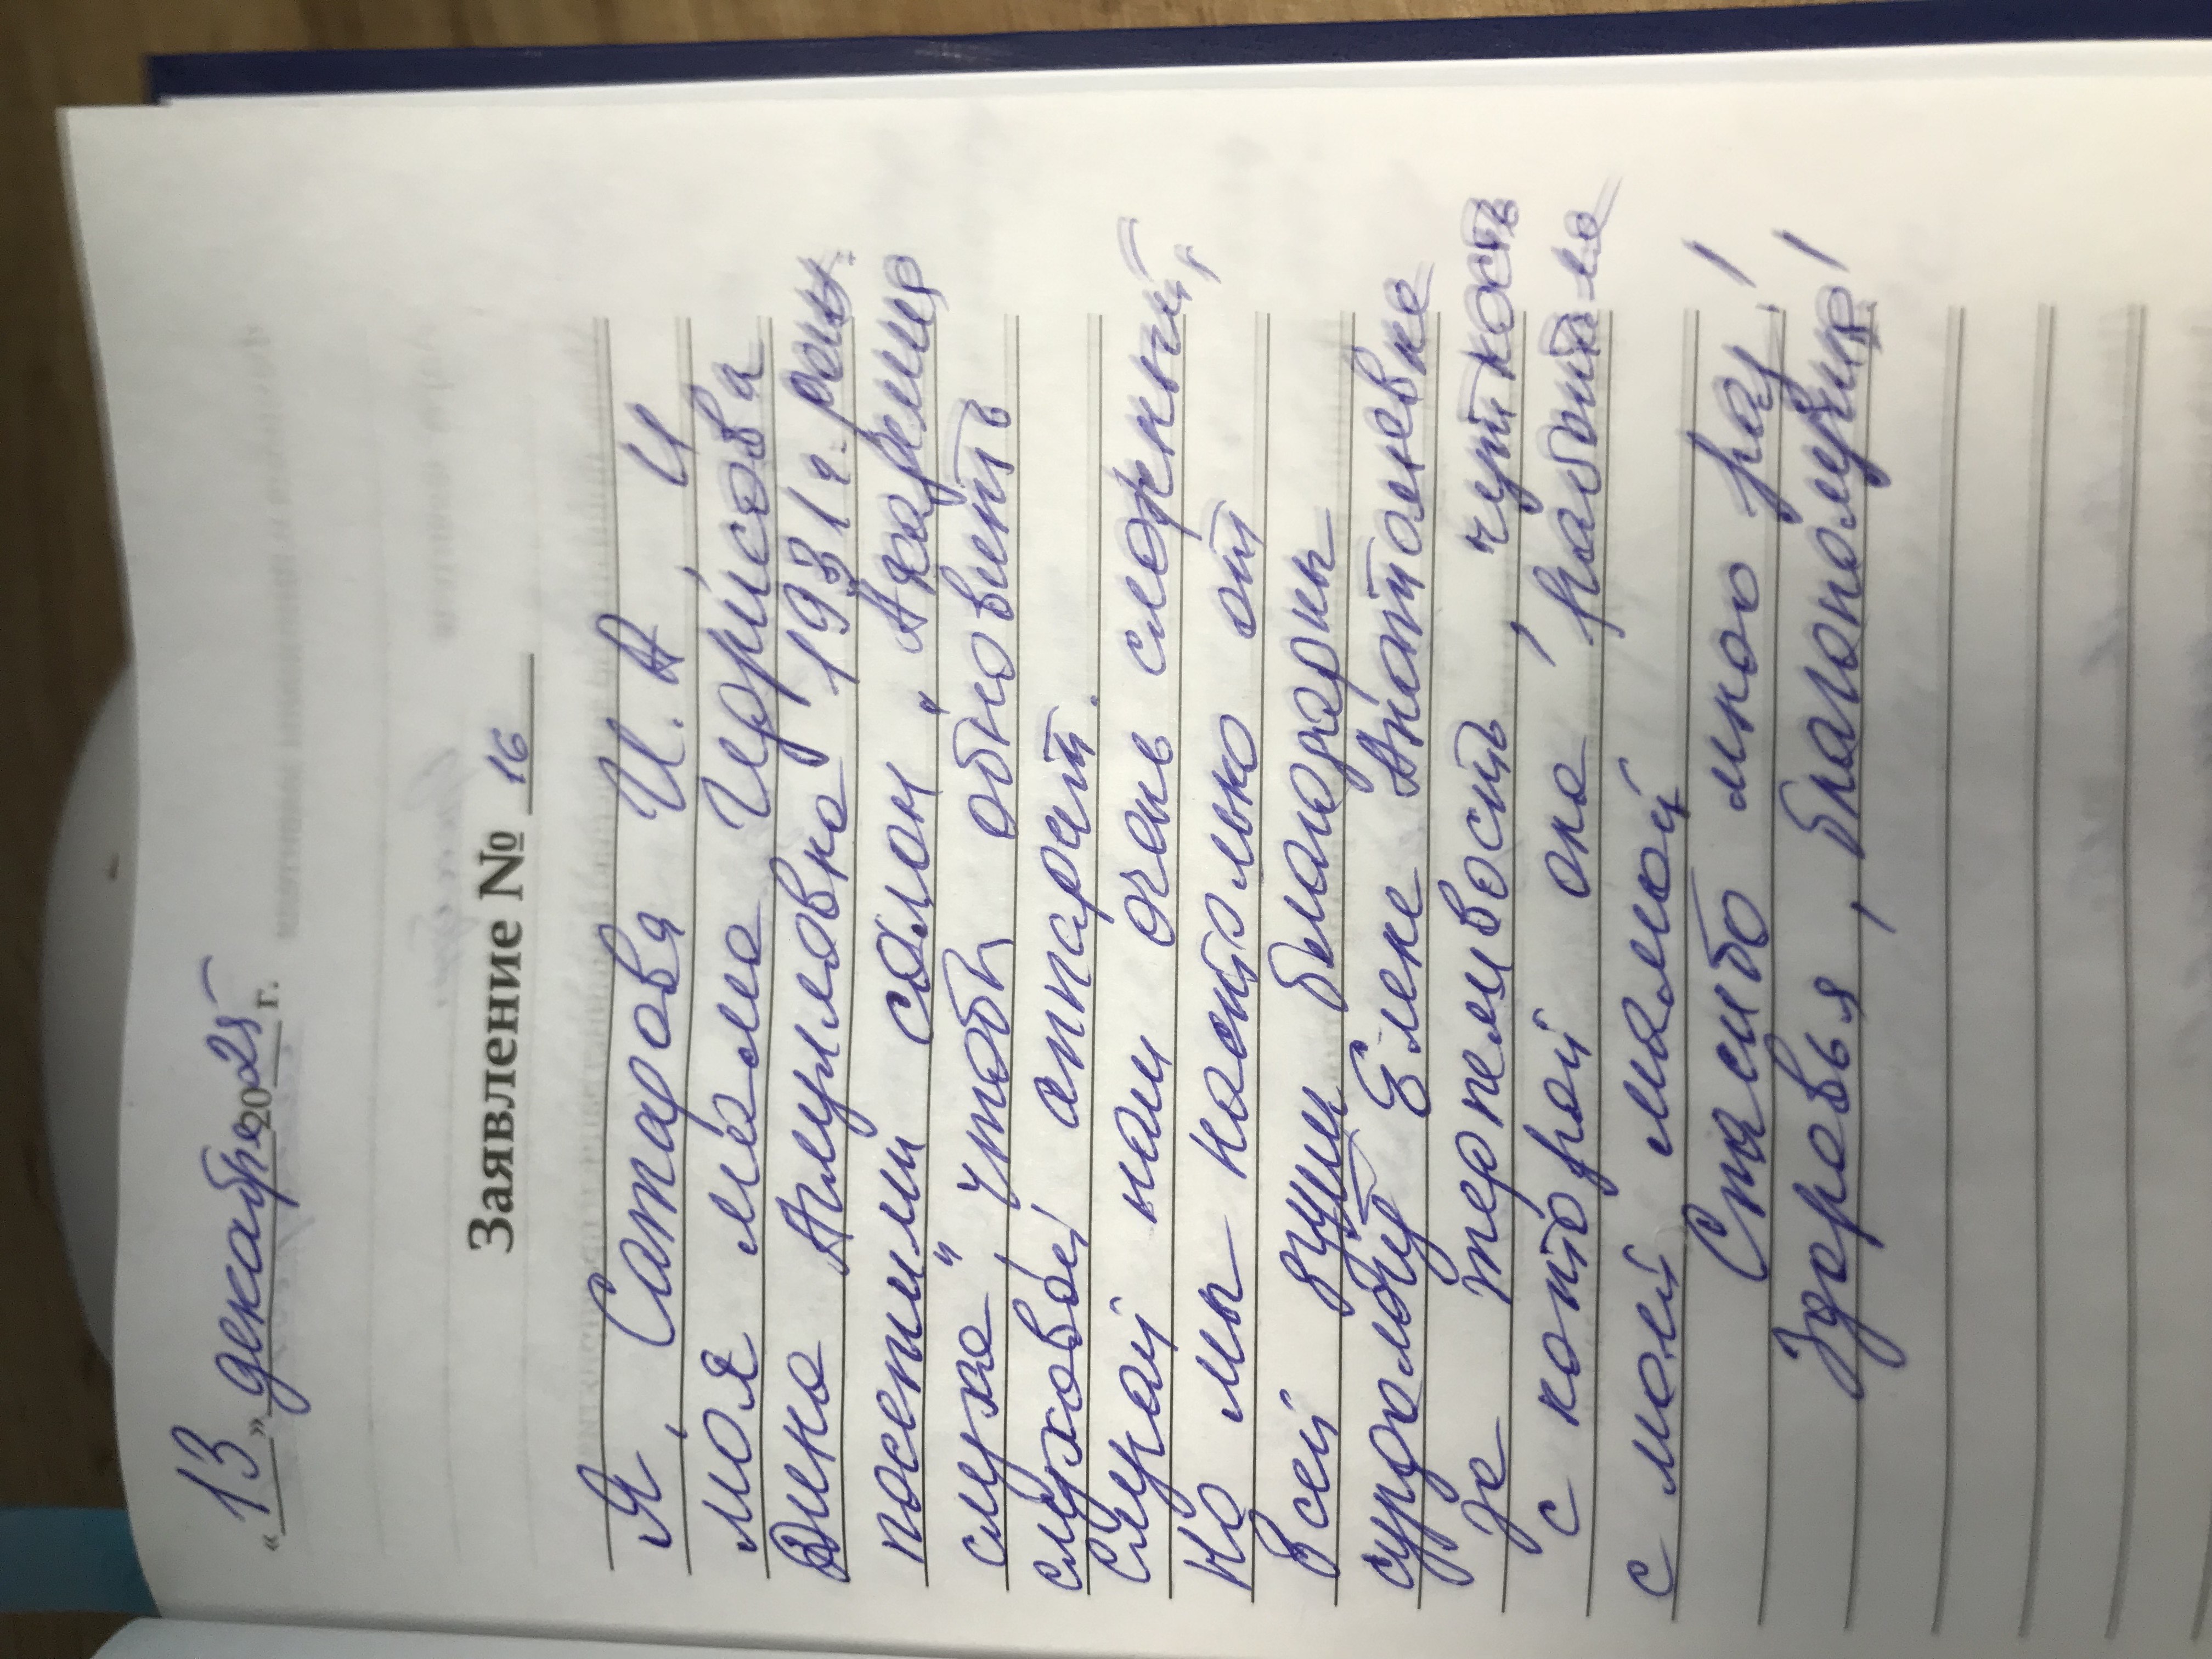 «13» декабря 2025 г.
Заявление № 16
Я, Сатарова И.А, И
моя мама Чернисова
Дина Агмуловна 1931 г. рожд.
посетили салон „Академия
слуха" чтобы обновить
слуховой аппарат.
Случай наш очень сложный,
Но мы настолько от
всей души благодарны
сурдологу Елене Анатольевне
за терпеливость, чуткость
с которой она работала
с моей мамой
Спасибо много раз!
Здоровья, благополучия!